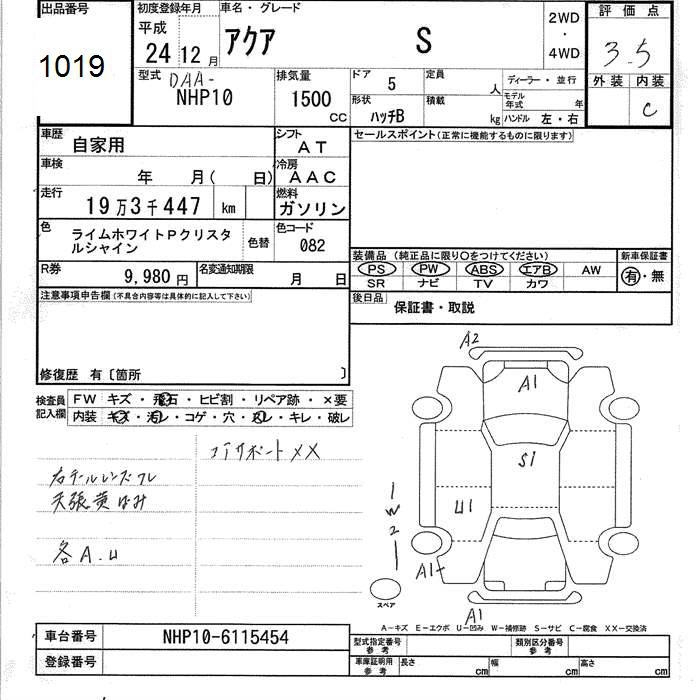 出品番号
1019
初度登録年月
平成
24 12 月
車名・グレード
アクア S
2WD
・
4WD
評価点
3.5
外装 内装
C
型式 DAA-
NHP10
排気量
1500
CC
ドア 5
定員 人
ディーラー・並行
モデル年式 年
形状 ハッチB
積載 kg
ハンドル 左・右
車歴
自家用
シフト
AT
車検
年 月( 日)
冷房
AAC
走行
19万3千447 km
燃料
ガソリン
色
ライムホワイトPクリスタ
ルシャイン
色替
色コード
082
R券
9,980 円
名変通知期限
月 日
セールスポイント(正常に機能するものに限ります)
装備品 (純正品に限り○をつけてください)
PS PW ABS エアB AW
SR ナビ TV カワ
新車保証書
有・無
後日品 保証書・取説
注意事項申告欄(不具合内容等は具体的に記入して下さい)
修復歴 有〔箇所 〕
検査員
記入欄
FW キズ・飛石・ヒビ割・リペア跡・×要
内装 キズ・汚レ・コゲ・穴・スレ・キレ・破レ
コアサポートXX
右テールレンズワレ
天張黄ばみ
各A.U
A2
A1
S1
U1
1
W
2
A1
A1
スペア
A－キズ E－エクボ U－凹み W－補修跡 S－サビ C－腐食 XX－交換済
車台番号 NHP10-6115454
登録番号
型式指定番号
参考
類別区分番号
参考
車庫証明用
参考
長さ cm
幅 cm
高さ cm